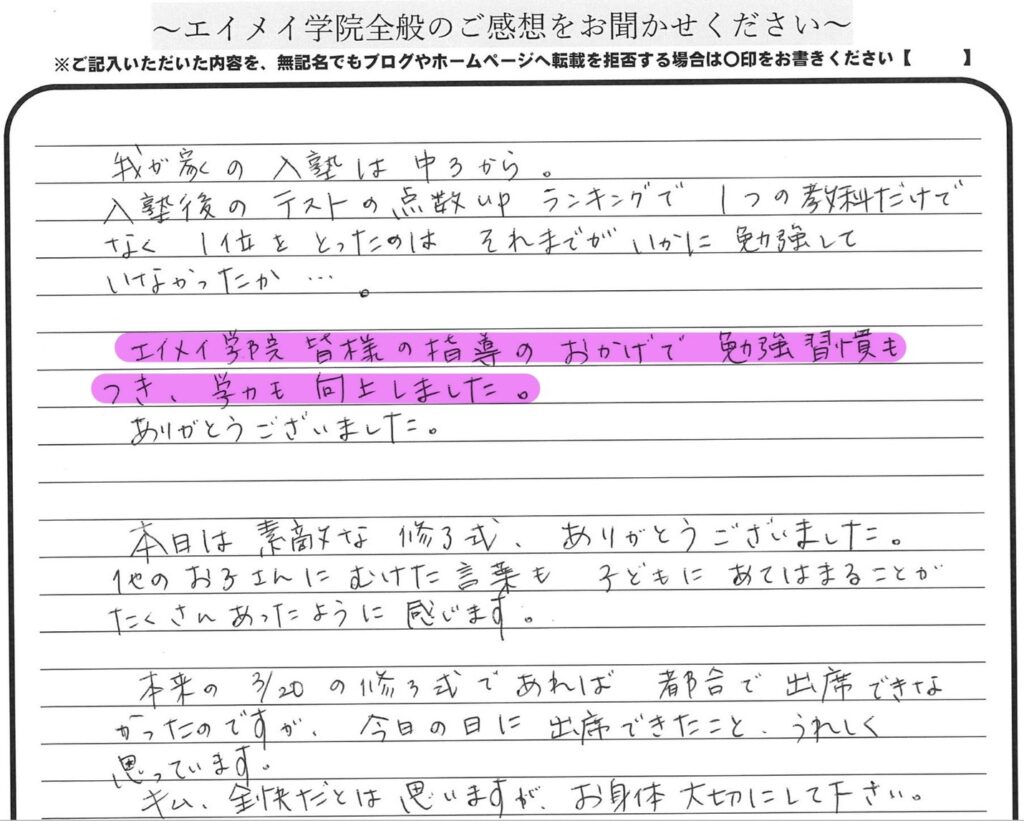 ～エイメイ学院全般のご感想をお聞かせください～
※ご記入いただいた内容を、無記名でもブログやホームページへ転載を拒否する場合は〇印をお書きください【　　】
我が家の 入塾は 中3から。
入塾後の テストの点数up ランキングで 1つの教科だけで
なく 1位を とったのは それまでが いかに 勉強して
いなかったか …。
エイメイ学院 皆様の指導の おかげで 勉強習慣も
つき、学力も 向上しました。
ありがとうございました。
本日は 素敵な 修了式、ありがとうございました。
他の お子さんに むけた言葉も 子どもに あてはまることが
たくさん あったように 感じます。
本来の 3/20 の修了式で あれば 都合で 出席できな
かったのですが、今日の日に 出席できたこと、うれしく
思っています。
キム、全快だとは 思いますが、お身体 大切にして下さい。